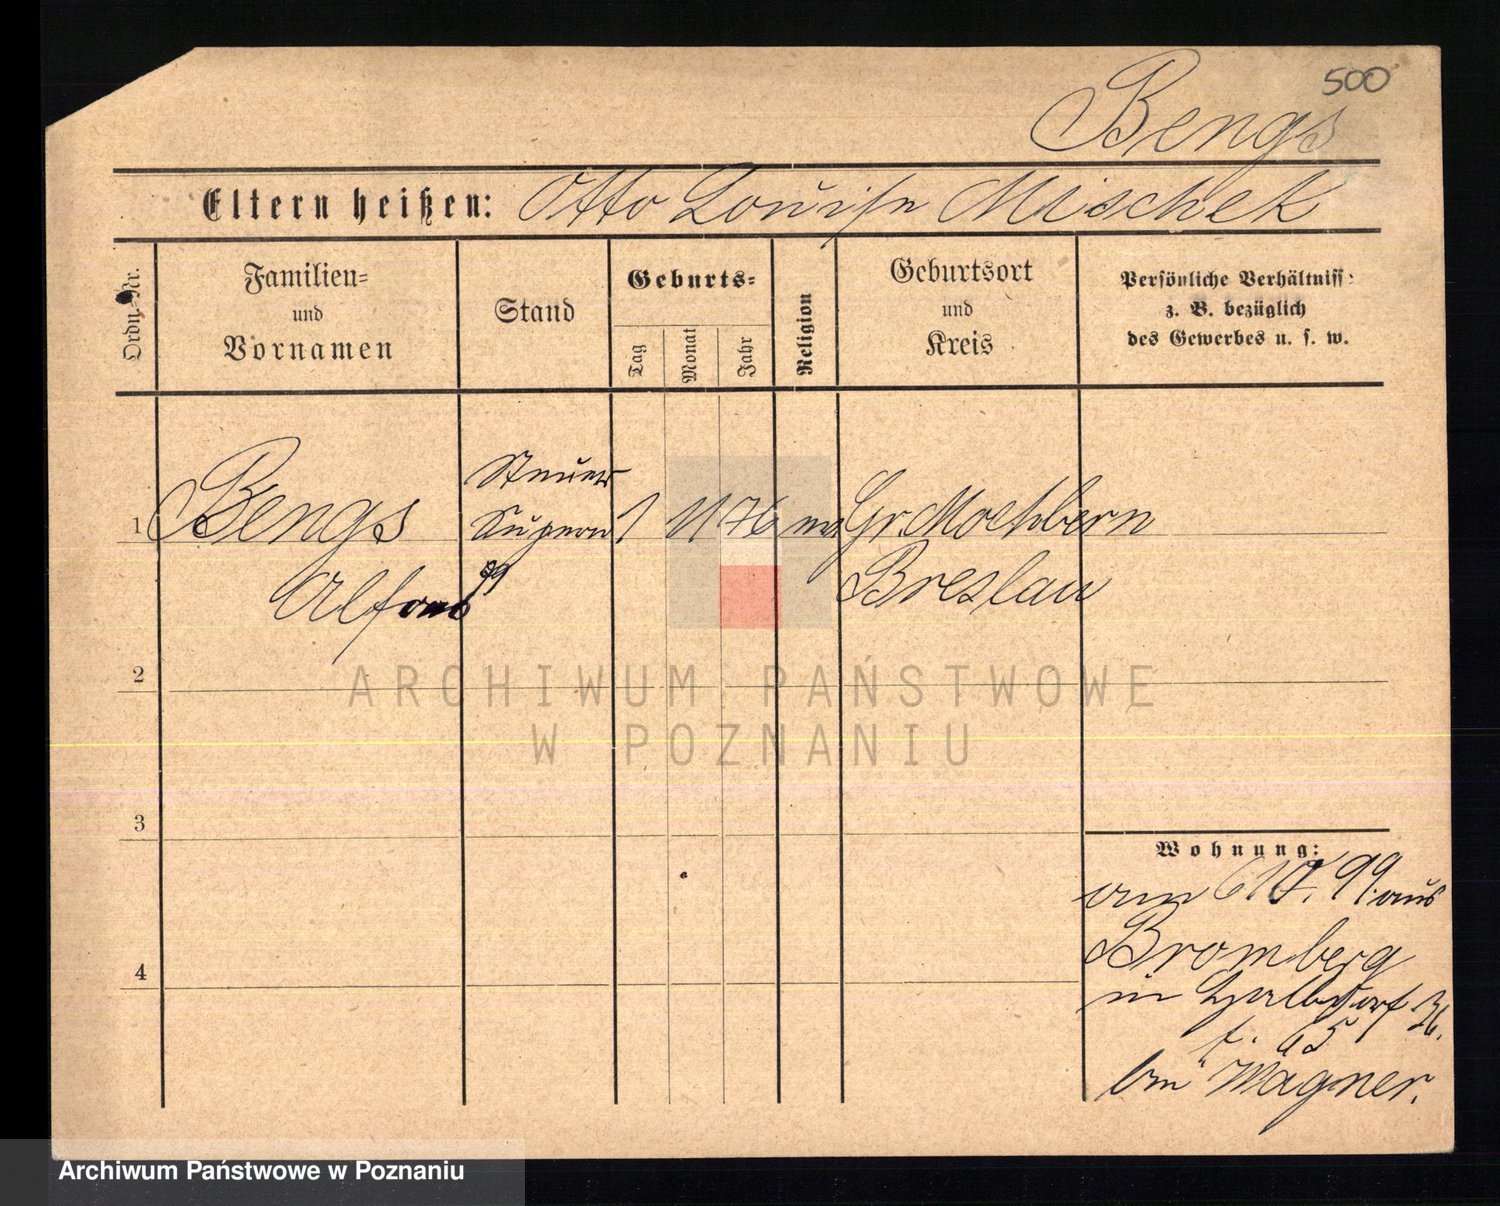 500
Bengs
Eltern heißen: Otto Louise Mischek
Ordn.-Nr.
Familien=
und
Vornamen
Stand
Geburts=
Tag
Monat
Jahr
Religion
Geburtsort
und
Kreis
Persönliche Verhältniss:
z. B. bezüglich
des Gewerbes u. s. w.
1 Bengs Steuer Supern 1 11 76 ev Gr Mochbern
Alfons Breslau
2
ARCHIWUM PAŃSTWOWE
W POZNANIU
3
Wohnung:
am 6 10. 99. aus
Bromberg
4
in Halbdorf 36.
b. 65
bei Wagner.
Archiwum Państwowe w Poznaniu